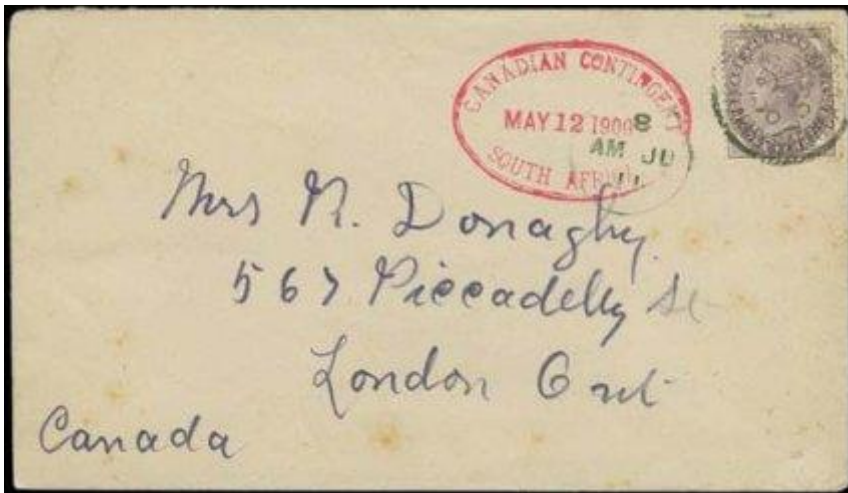 CANADIAN CONTINGENT
MAY 12 1900
8
AM JU
11
SOUTH AFRICA
Mrs R. Donaghy.
567 Piccadelly St
London Ont
Canada